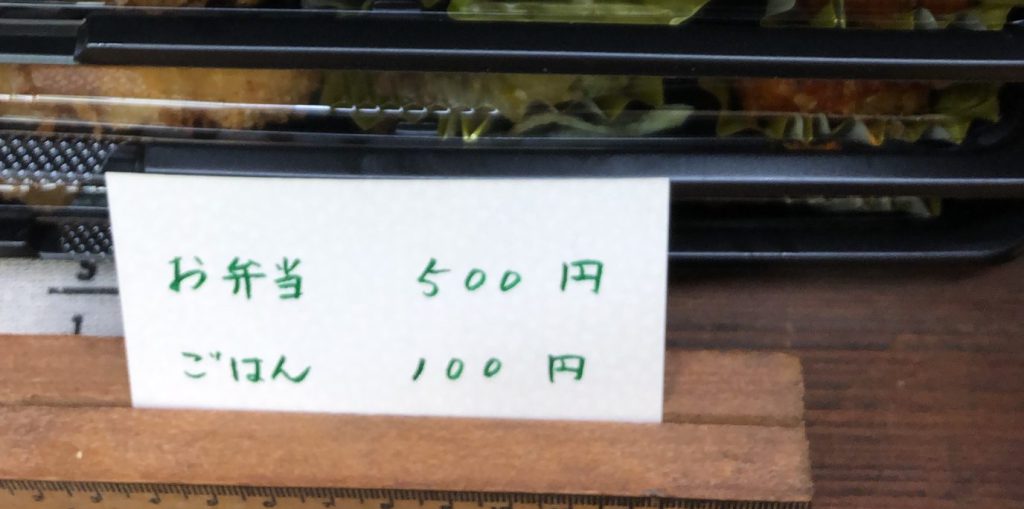 お弁当 500円
ごはん 100円